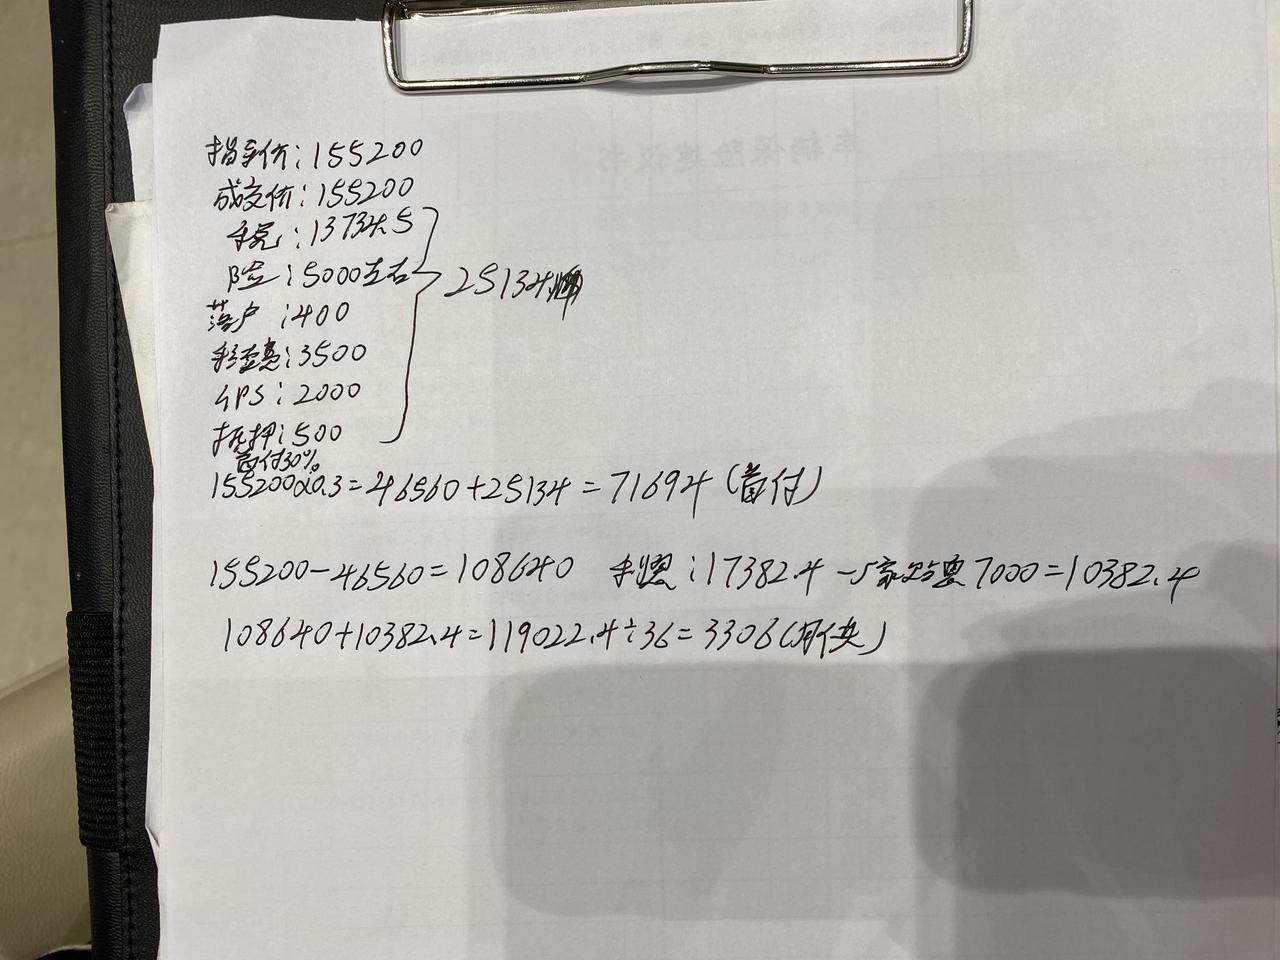 指导价:155200
成交价:155200
税:13734.5
险:5000左右
25134
落户:400
:3500
GPS:2000
抵押:500
首付30%
155200×0.3=46560+25134=71694(首付)
155200-46560=108640 :17382.4-厂家贴息7000=10382.4
108640+10382.4=119022.4÷36=3306(月供)
车辆保险建议书